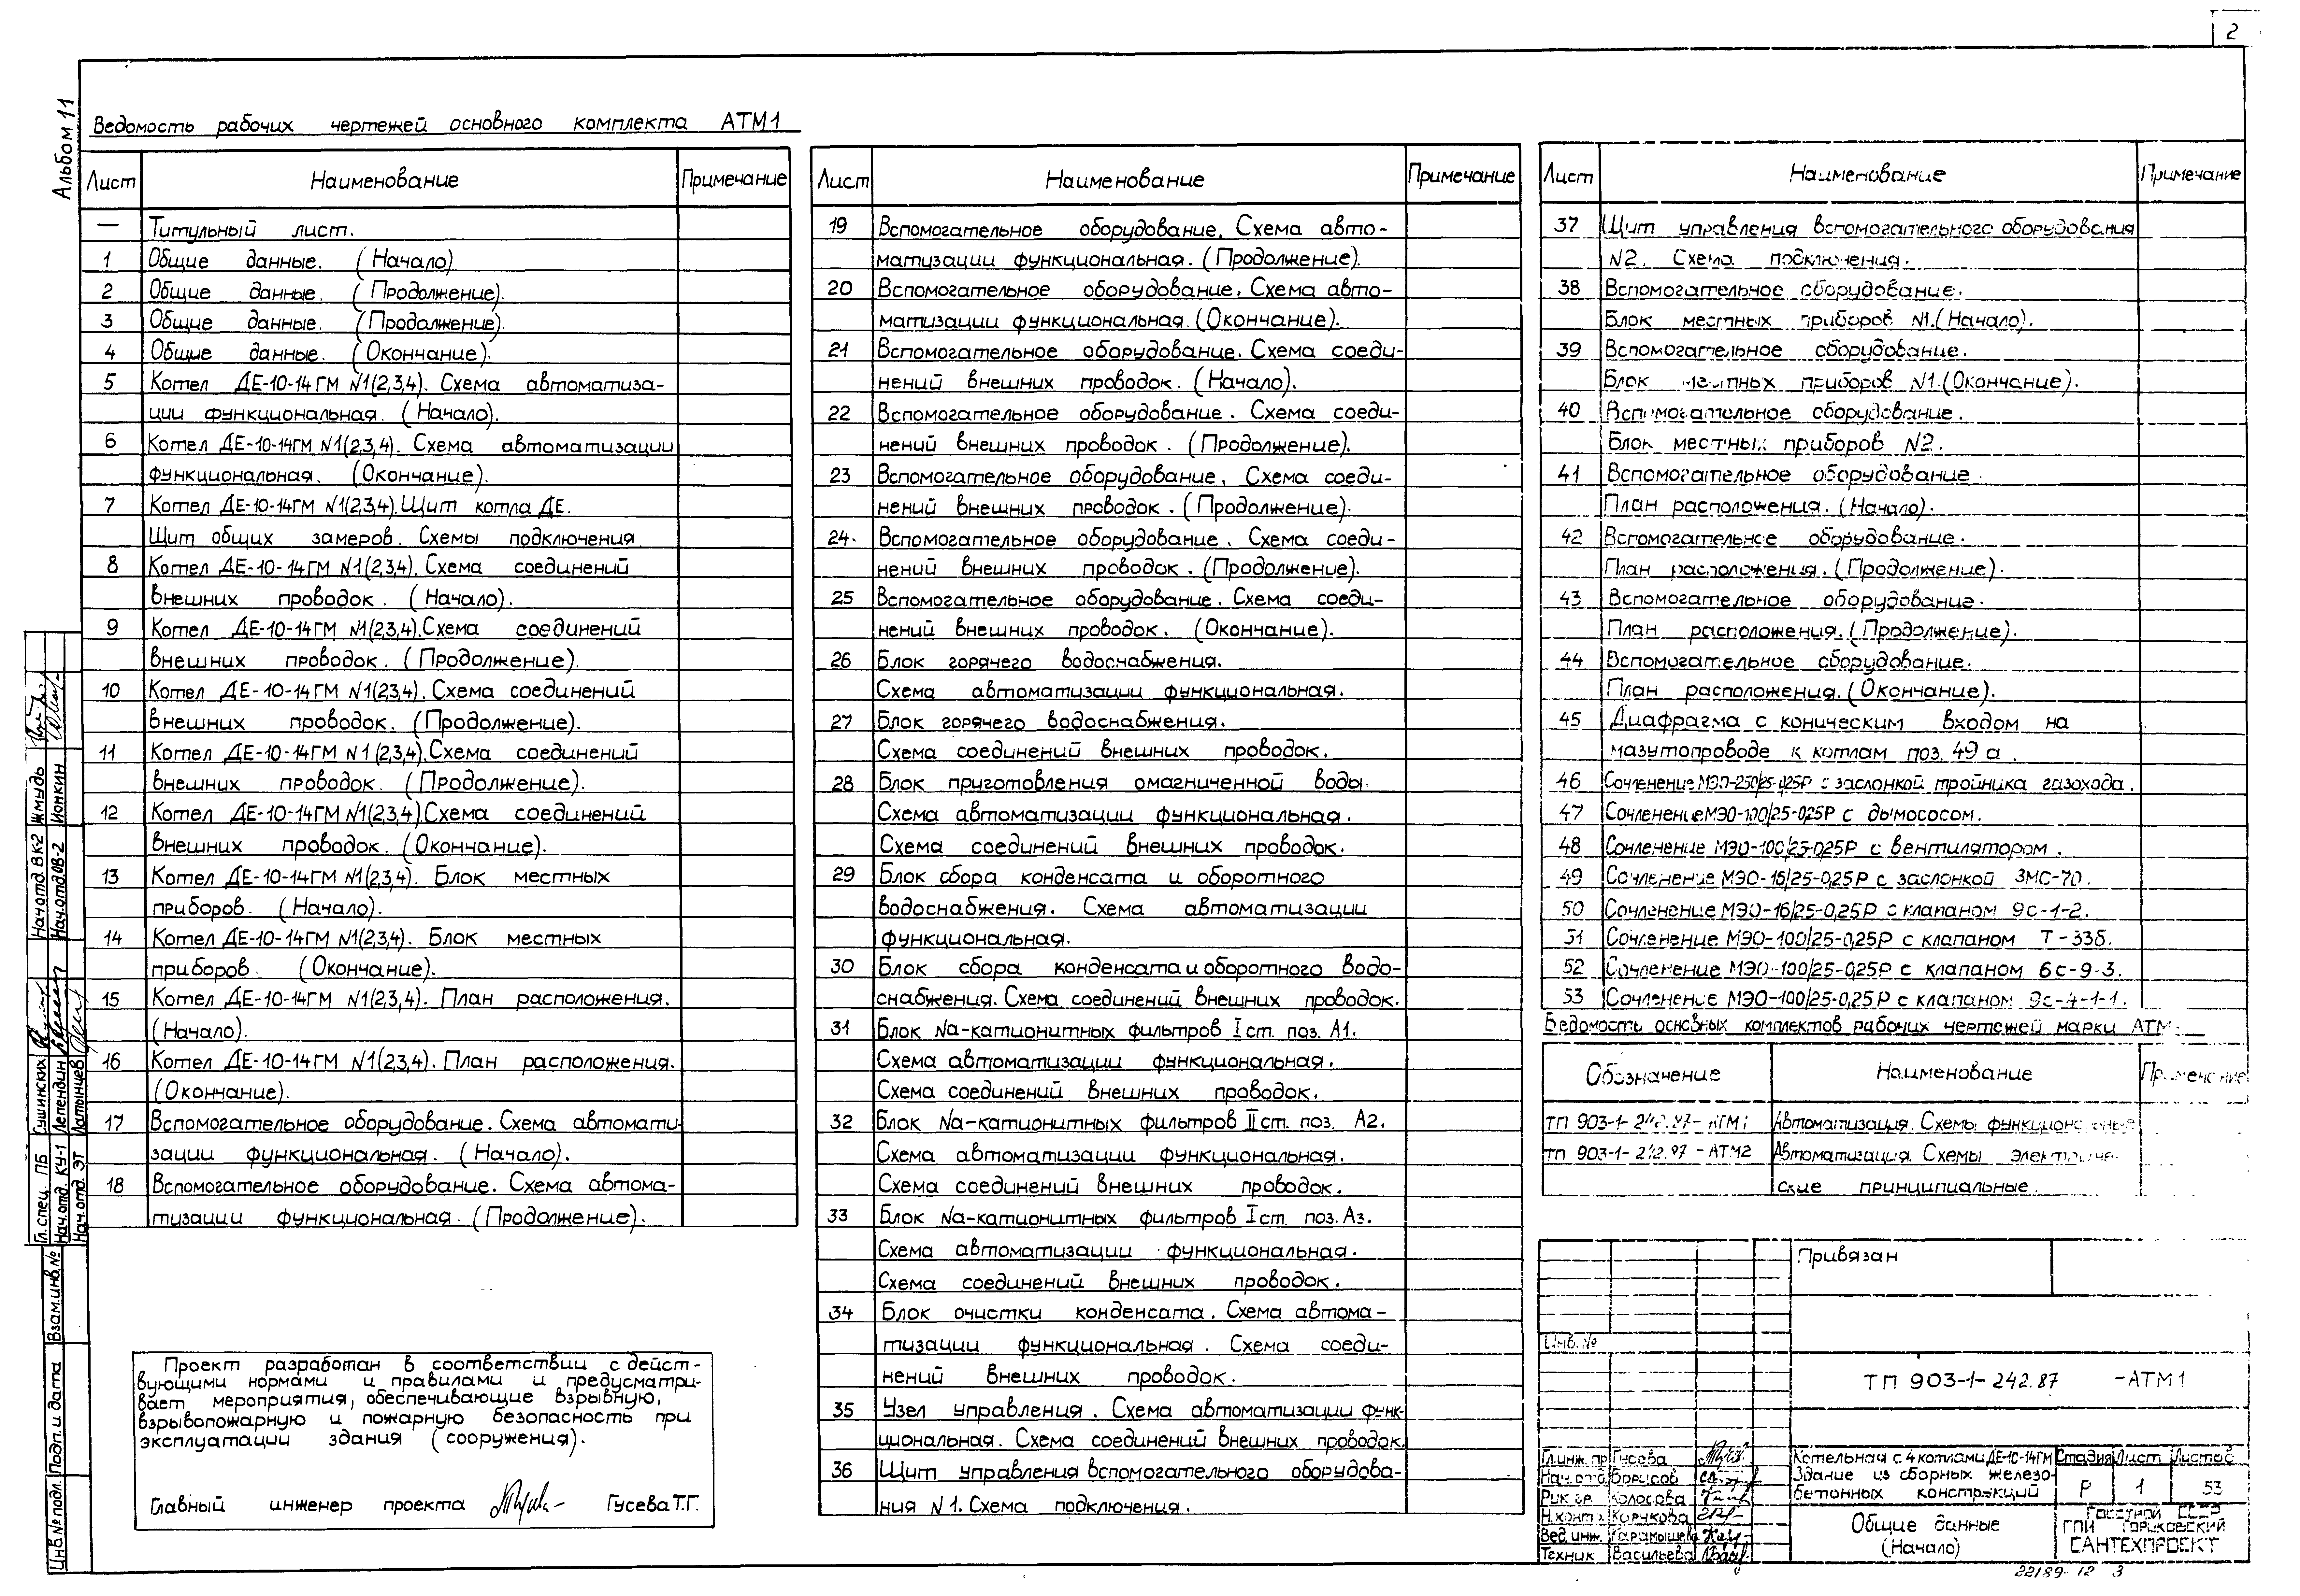 2
Альбом 11
Ведомость рабочих чертежей основного комплекта АТМ1
Лист Наименование Примечание
— Титульный лист.
1 Общие данные. (Начало)
2 Общие данные. (Продолжение).
3 Общие данные. (Продолжение).
4 Общие данные. (Окончание).
5 Котел ДЕ-10-14ГМ №1(2,3,4). Схема автоматиза-
ции функциональная. (Начало).
6 Котел ДЕ-10-14ГМ №1(2,3,4). Схема автоматизации
функциональная. (Окончание).
7 Котел ДЕ-10-14ГМ №1(2,3,4). Щит котла ДЕ.
Щит общих замеров. Схемы подключения
8 Котел ДЕ-10-14ГМ №1(2,3,4). Схема соединений
внешних проводок. (Начало).
9 Котел ДЕ-10-14ГМ №1(2,3,4). Схема соединений
внешних проводок. (Продолжение).
10 Котел ДЕ-10-14ГМ №1(2,3,4). Схема соединений
внешних проводок. (Продолжение).
11 Котел ДЕ-10-14ГМ №1(2,3,4). Схема соединений
внешних проводок. (Продолжение).
12 Котел ДЕ-10-14ГМ №1(2,3,4). Схема соединений
внешних проводок. (Окончание).
13 Котел ДЕ-10-14ГМ №1(2,3,4). Блок местных
приборов. (Начало).
14 Котел ДЕ-10-14ГМ №1(2,3,4). Блок местных
приборов. (Окончание).
15 Котел ДЕ-10-14ГМ №1(2,3,4). План расположения.
(Начало).
16 Котел ДЕ-10-14ГМ №1(2,3,4). План расположения.
(Окончание).
17 Вспомогательное оборудование. Схема автомати-
зации функциональная. (Начало).
18 Вспомогательное оборудование. Схема автома-
тизации функциональная. (Продолжение).
Проект разработан в соответствии с дейст-
вующими нормами и правилами и предусматри-
вает мероприятия, обеспечивающие взрывную,
взрывопожарную и пожарную безопасность при
эксплуатации здания (сооружения).
Главный инженер проекта Гусева Т.Г.
Лист Наименование Примечание
19 Вспомогательное оборудование. Схема авто-
матизации функциональная. (Продолжение).
20 Вспомогательное оборудование. Схема авто-
матизации функциональная. (Окончание).
21 Вспомогательное оборудование. Схема соеди-
нений внешних проводок. (Начало).
22 Вспомогательное оборудование. Схема соеди-
нений внешних проводок. (Продолжение).
23 Вспомогательное оборудование. Схема соеди-
нений внешних проводок. (Продолжение).
24. Вспомогательное оборудование. Схема соеди-
нений внешних проводок. (Продолжение).
25 Вспомогательное оборудование. Схема соеди-
нений внешних проводок. (Окончание).
26 Блок горячего водоснабжения.
Схема автоматизации функциональная.
27 Блок горячего водоснабжения.
Схема соединений внешних проводок.
28 Блок приготовления омагниченной воды.
Схема автоматизации функциональная.
Схема соединений внешних проводок.
29 Блок сбора конденсата и оборотного
водоснабжения. Схема автоматизации
функциональная.
30 Блок сбора конденсата и оборотного водо-
снабжения. Схема соединений внешних проводок.
31 Блок Na-катионитных фильтров I ст. поз. А1.
Схема автоматизации функциональная.
Схема соединений внешних проводок.
32 Блок Na-катионитных фильтров II ст. поз. А2.
Схема автоматизации функциональная.
Схема соединений внешних проводок.
33 Блок Na-катионитных фильтров I ст. поз. А3.
Схема автоматизации функциональная.
Схема соединений внешних проводок.
34 Блок очистки конденсата. Схема автома-
тизации функциональная. Схема соеди-
нений внешних проводок.
35 Узел управления. Схема автоматизации функ-
циональная. Схема соединений внешних проводок.
36 Щит управления вспомогательного оборудова-
ния №1. Схема подключения.
Лист Наименование Примечание
37 Щит управления вспомогательного оборудования
№2. Схема подключения.
38 Вспомогательное оборудование.
Блок местных приборов №1. (Начало).
39 Вспомогательное оборудование.
Блок местных приборов №1. (Окончание).
40 Вспомогательное оборудование.
Блок местных приборов №2.
41 Вспомогательное оборудование.
План расположения. (Начало).
42 Вспомогательное оборудование.
План расположения. (Продолжение).
43 Вспомогательное оборудование.
План расположения. (Продолжение).
44 Вспомогательное оборудование.
План расположения. (Окончание).
45 Диафрагма с коническим входом на
мазутопроводе к котлам поз. 49а.
46 Сочленение МЭО-250/25-0,25Р с заслонкой тройника газохода.
47 Сочленение МЭО-100/25-0,25Р с дымососом.
48 Сочленение МЭО-100/25-0,25Р с вентилятором.
49 Сочленение МЭО-16/25-0,25Р с заслонкой ЗМС-70.
50 Сочленение МЭО-16/25-0,25Р с клапаном 9с-1-2.
51 Сочленение МЭО-100/25-0,25Р с клапаном Т-33б.
52 Сочленение МЭО-100/25-0,25Р с клапаном 6с-9-3.
53 Сочленение МЭО-100/25-0,25Р с клапаном 9с-4-1-1.
Ведомость основных комплектов рабочих чертежей марки АТМ.
Обозначение Наименование Примечание
ТП 903-1-242.87-АТМ1 Автоматизация. Схемы функциональные
ТП 903-1-242.87-АТМ2 Автоматизация. Схемы электриче-
ские принципиальные
Привязан
Инв. №
ТП 903-1-242.87 -АТМ1
Гл.инж.пр Гусева
Нач.отд. Борисов
Рук.гр. Колосова
Н.контр.
Вед.инж. Карамышева
Техник Васильева
Котельная с 4 котлами ДЕ-10-14ГМ
Здание из сборных железо-
бетонных конструкций
Стадия Лист Листов
Р 1 53
Общие данные
(Начало)
Госстрой СССР
ГПИ Горьковский
САНТЕХПРОЕКТ
22189-12 3
Нач.отд. ВК-2 Жмудь
Нач.отд. ОВ-2 Ионкин
Гл.спец. ПБ Сушинских
Нач.отд. КУ-1 Лепендин
Нач.отд. ЭТ Латынцев
Взам.инв.№
Подп. и дата
Инв.№ подл.